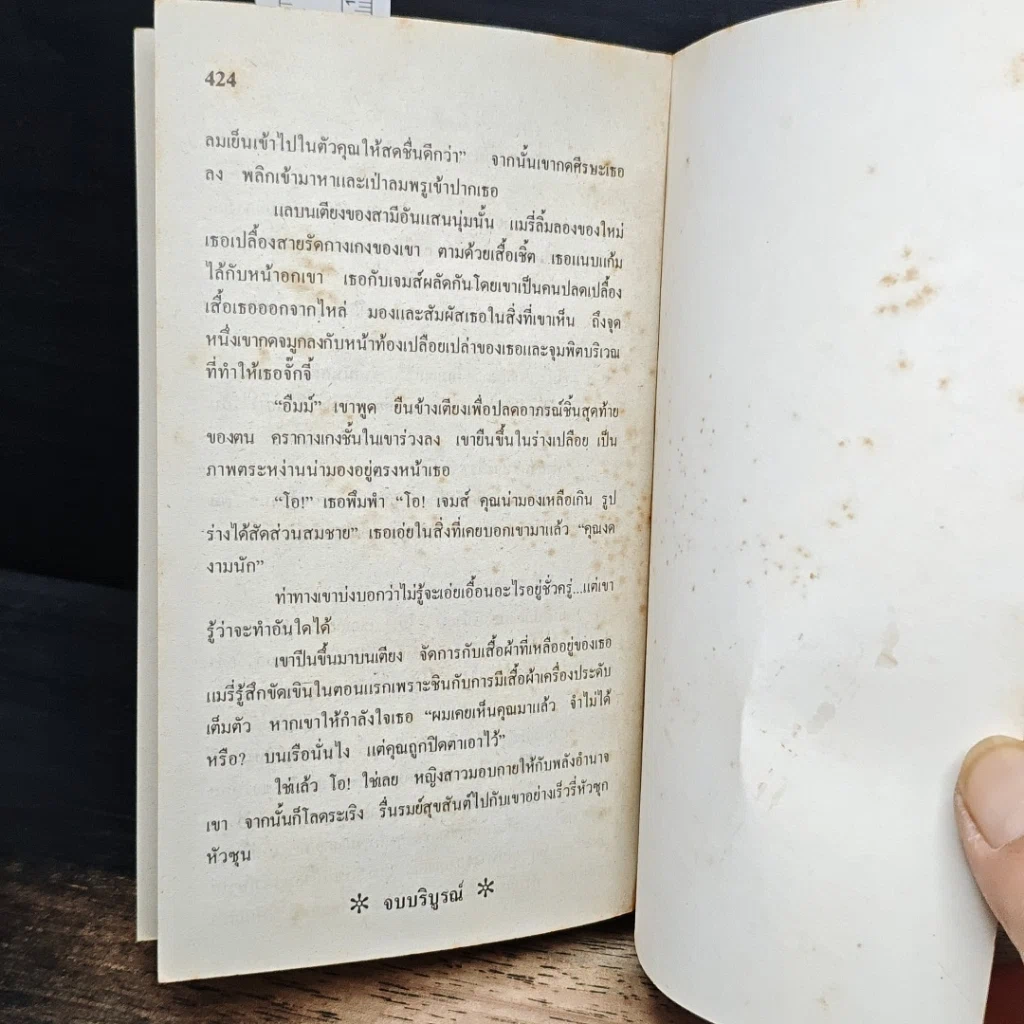 424
ลมเย็นเข้าไปในตัวคุณให้สดชื่นดีกว่า” จากนั้นเขากดศีรษะเธอ
ลง พลิกเข้ามาหาและเป่าลมพรูเข้าปากเธอ
แลบนเตียงของสามีอันแสนนุ่มนั้น แมรี่ลิ้มลองของใหม่
เธอเปลื้องสายรัดกางเกงของเขา ตามด้วยเสื้อเชิ้ต เธอแนบแก้ม
ไล้กับหน้าอกเขา เธอกับเจมส์ผลัดกันโดยเขาเป็นคนปลดเปลื้อง
เสื้อเธอออกจากไหล่ มองและสัมผัสเธอในสิ่งที่เขาเห็น ถึงจุด
หนึ่งเขากดจมูกลงกับหน้าท้องเปลือยเปล่าของเธอและจุมพิตบริเวณ
ที่ทำให้เธอจั๊กจี้
“อืมม์” เขาพูด ยืนข้างเตียงเพื่อปลดอาภรณ์ชิ้นสุดท้าย
ของตน ครากางเกงชั้นในเขาร่วงลง เขายืนขึ้นในร่างเปลือย เป็น
ภาพตระหง่านน่ามองอยู่ตรงหน้าเธอ
“โอ!” เธอพึมพำ “โอ! เจมส์ คุณน่ามองเหลือเกิน รูป
ร่างได้สัดส่วนสมชาย” เธอเอ่ยในสิ่งที่เคยบอกเขามาแล้ว “คุณงด
งามนัก”
ท่าทางเขาบ่งบอกว่าไม่รู้จะเอ่ยเอื้อนอะไรอยู่ชั่วครู่...แต่เขา
รู้ว่าจะทำอันใดได้
เขาปีนขึ้นมาบนเตียง จัดการกับเสื้อผ้าที่เหลืออยู่ของเธอ
แมรี่รู้สึกขัดเขินในตอนแรกเพราะชินกับการมีเสื้อผ้าเครื่องประดับ
เต็มตัว หากเขาให้กำลังใจเธอ “ผมเคยเห็นคุณมาแล้ว จำไม่ได้
หรือ? บนเรือนั่นไง แต่คุณถูกปิดตาเอาไว้”
ใช่แล้ว โอ! ใช่เลย หญิงสาวมอบกายให้กับพลังอำนาจ
เขา จากนั้นก็โลดระเริง รื่นรมย์สุขสันต์ไปกับเขาอย่างเร็วรี่หัวซุก
หัวซุน
✲ จบบริบูรณ์ ✲